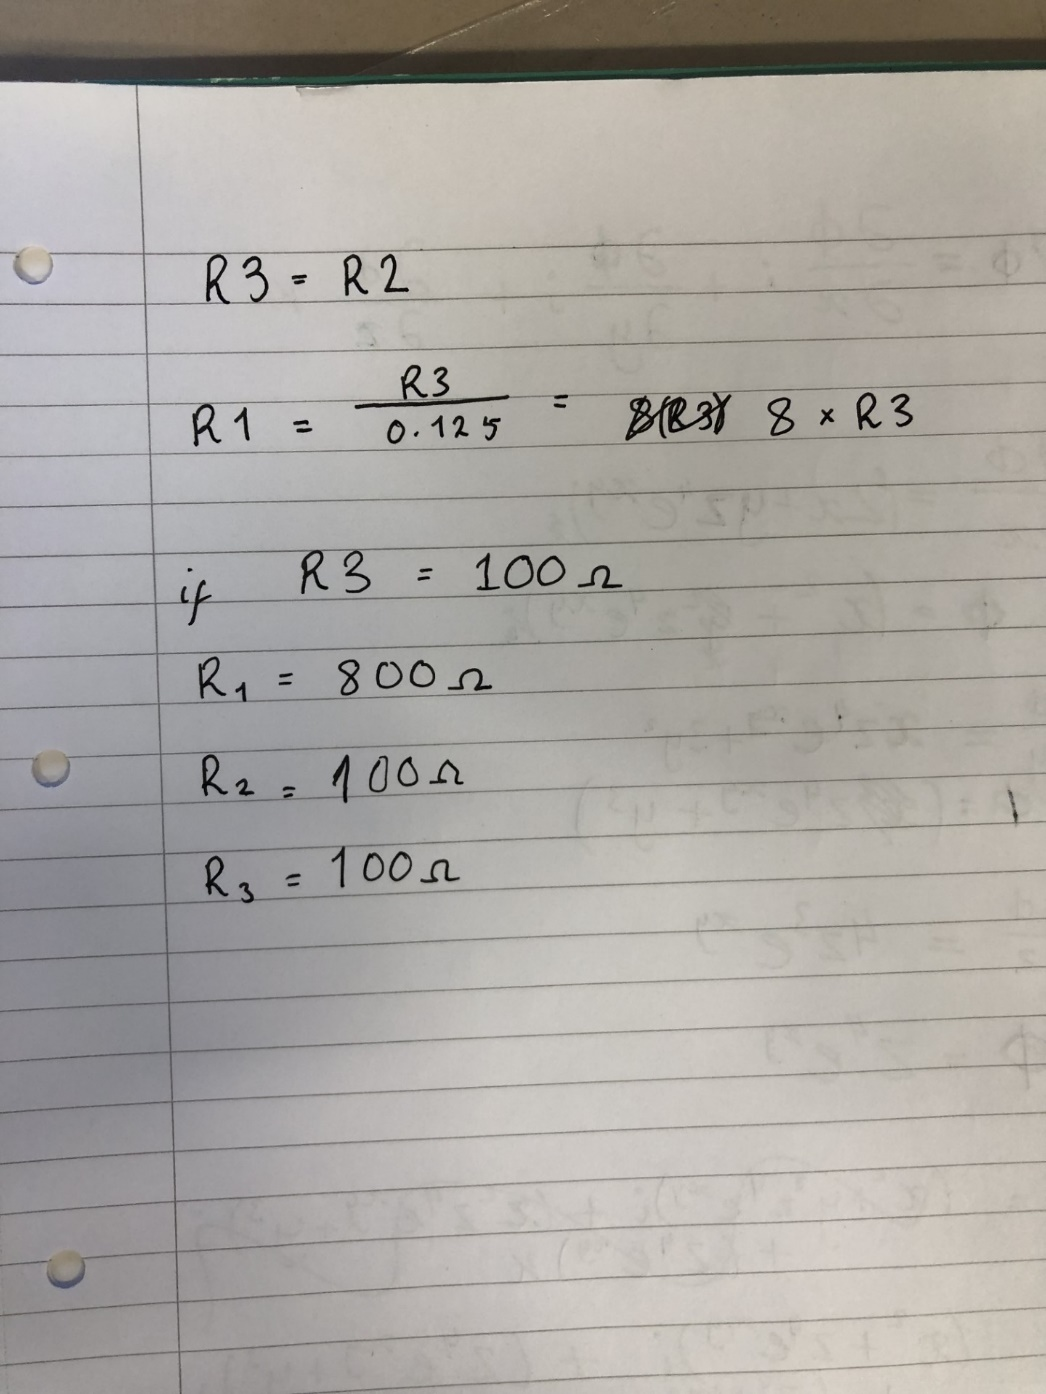 R3 = R2
R1 = R3/0.125 = 8 × R3
if R3 = 100Ω
R1 = 800Ω
R2 = 100Ω
R3 = 100Ω